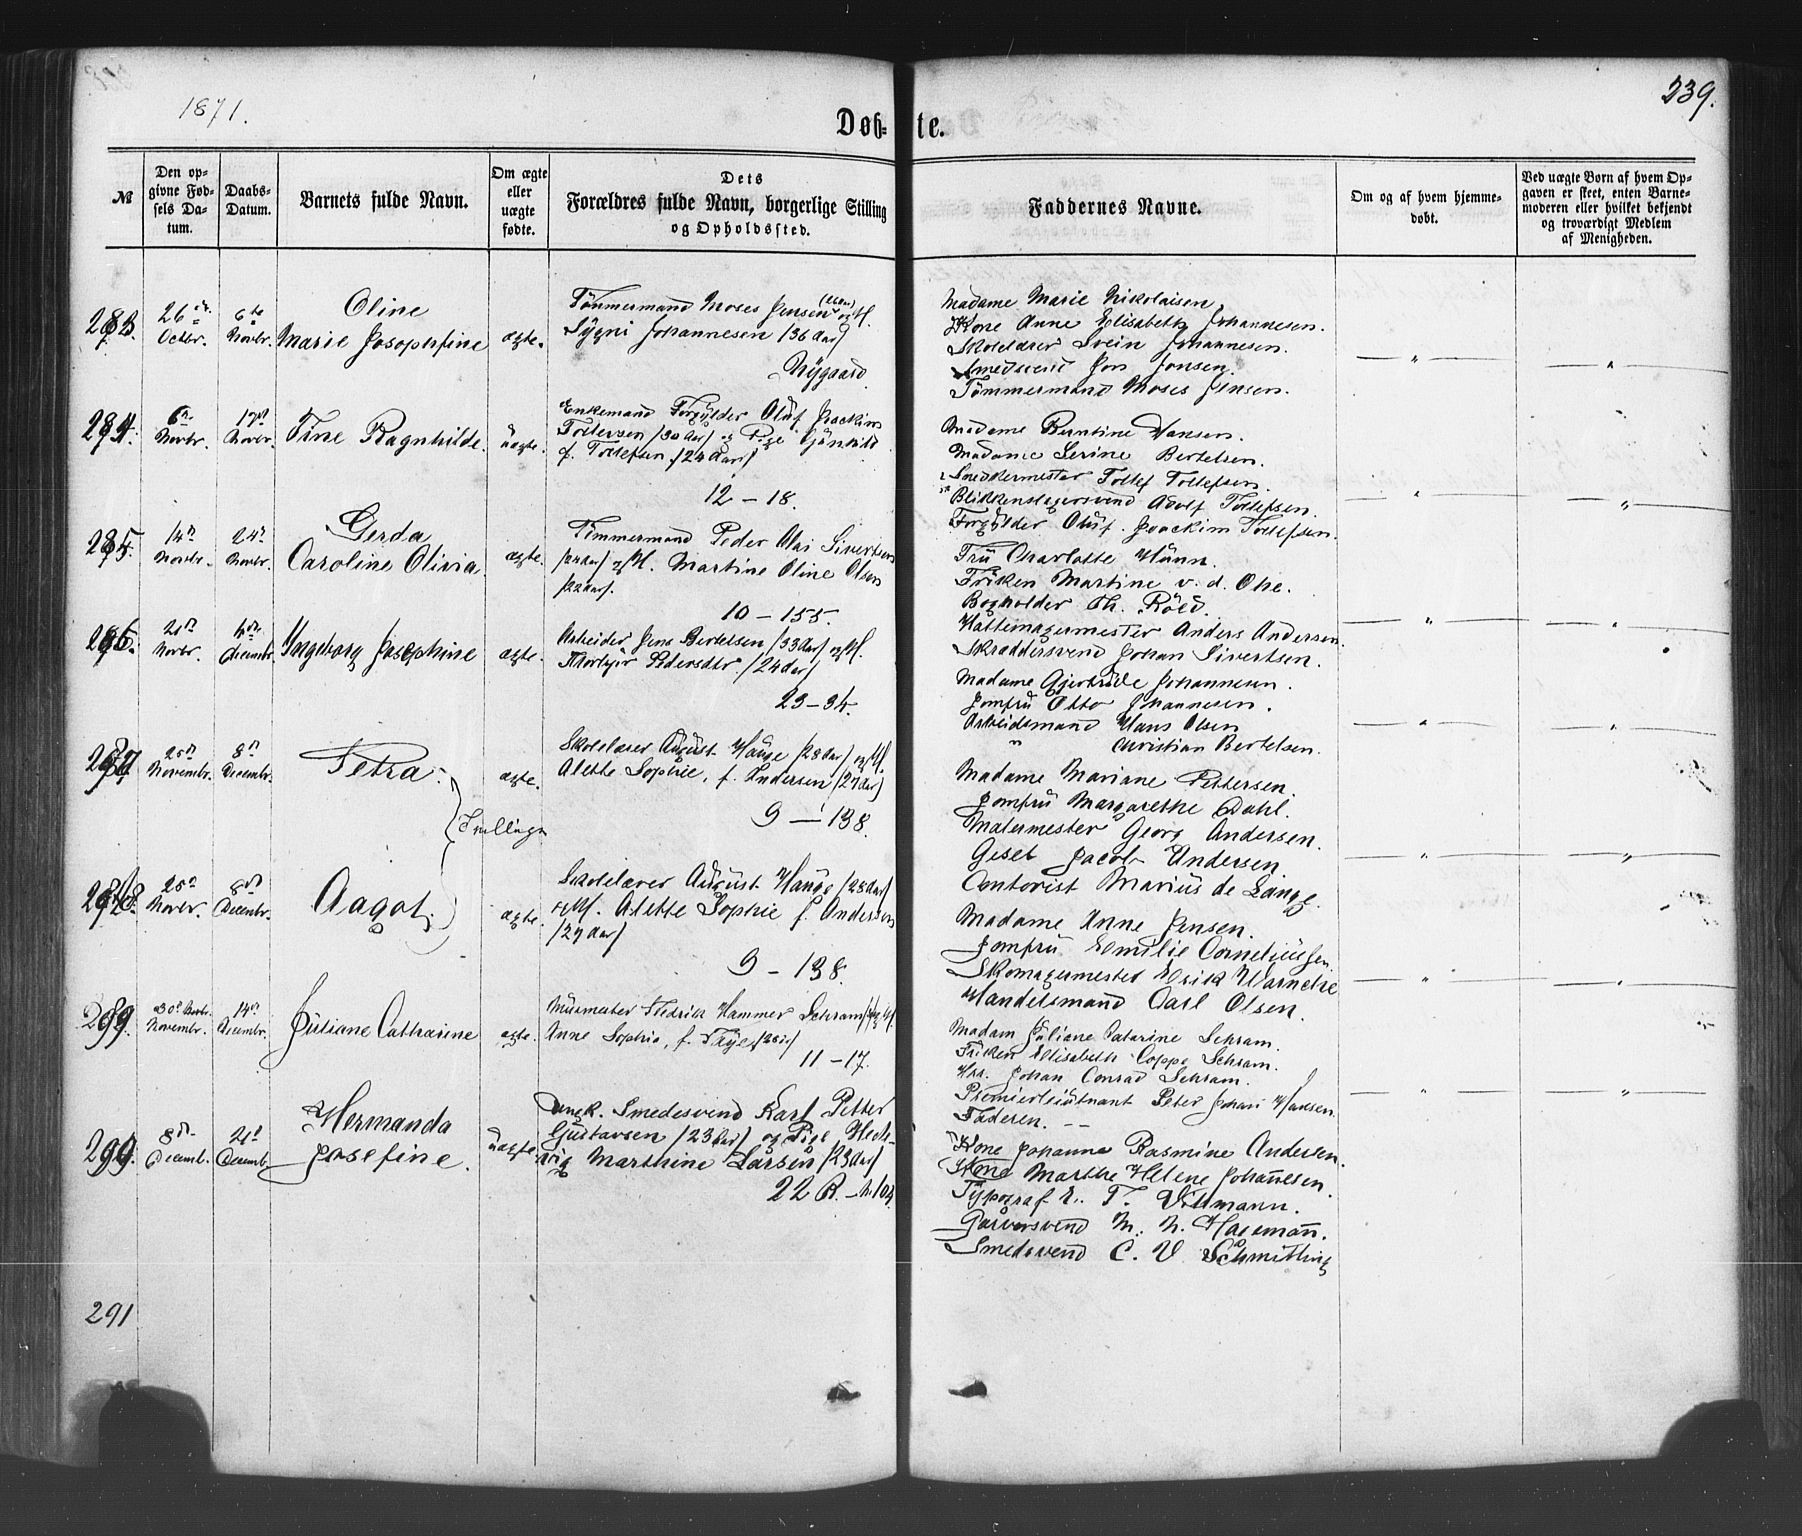 1871.
239.
Døb-te.
№
Den op-
givne Fød-
sels Da-
tum.
Daabs-
Datum.
Barnets fulde Navn.
Om ægte
eller
uægte
fødte.
Dets
Forældres fulde Navn, borgerlige Stilling
og Opholdssted.
Faddernes Navne.
Om og af hvem hjemme-
døbt.
Ved uægte Børn af hvem Op-
gaven er skeet, enten Barne-
moderen eller hvilket bekjendt
og troværdigt Medlem
af Menigheden.
283.
26
Octbr.
6te
Novbr.
Oline
Marie Josephine
ægte.
Tømmermand Moses Jensen og H.
Johannesen /36 Aar/
Nygaard
Madame Marie Nikolaisen
Kone Anne Elisabeth Johannesen.
Skolelærer Svein Johannesen.
Smedsvend Jon Jonsen.
Tømmermand Moses Jensen.
284.
6
Novbr.
17
Novbr.
Tine Ragnhilde.
uægte.
Enkemand Forgylder Oluf Joackim
Tollefsen /30 Aar/ og Pige Gunhild
f. Tollefsen /24 Aar/
12 - 18.
Madame Berntine Hansen.
Madame Serine Bertelsen.
Snedkermester Tollef Tollefsen.
Blikkenslagersvend Adolf Tollefsen.
Forgylder Oluf Joackim Tollefsen.
285.
14
Novbr.
24
Novbr.
Gerda
Caroline Olivia
ægte.
Tømmermand Peder Olai Sivertsen
og H. Martine Oline Olsen
/22 Aar/.
10 - 155.
Fru Charlotte
Frøken Martine v. d. Ohe.
Bogholder Th. Røed.
Hattemagermester Anders Andersen
Skræddersvend Johan Sivertsen.
286.
21
Novbr.
Decembr.
Ingeborg Josephine
ægte.
Arbeider Jens Bertelsen /33 Aar/ og H.
Pedersdtr /24 Aar/
23 - 34.
Madame Gjertrude Johannesen.
Jomfru Johannesen.
Arbeidsmand Hans Olsen
" Christian Bertelsen.
287
25
Novembr.
8
Decembr.
Petra.
Tvillinger
ægte.
Skolelærer August Hauge /28 Aar/ og H.
Alette Sophie, f. Andersen /27 Aar/
9 - 138.
Madame Mariane Pettersen.
Jomfru Margarethe Dahl.
Malermester Georg Andersen.
Gesel Jacob Andersen.
Contorist Marius de Lange.
288.
25
Novbr.
8
Decembr.
Aagot.
ægte.
Skolelærer August Hauge /28 Aar/
og H. Alette Sophie f. Andersen
/27 Aar/
9 - 138.
Madame Anne Jensen.
Jomfru Emilie Corneliussen
Skomagermester Erik Warncke
Handelsmand Carl Olsen.
289.
Novembr.
14
Decembr.
Juliane Catharine
ægte.
Murmester Fredrik Hammer Schram og H.
Anne Sophie, f. Faye
11 - 17.
Madam Juliane Catarine Schram.
Frøken Elisabeth Coppe Schram.
Hrr. Johan Conrad Schram.
Premierleiutnant Peter Johan Hansen.
Faderen.
290.
8
Decemb.
21
Decemb.
Hermanda
Josefine.
uægte
Ungk. Smedesvend Karl Petter
Gustavsen /23 Aar/ og Pige Hed-
vig Marthine Larsen /23 Aar/
22 R. - № 104
Kone Johanne Rasmine Andersen.
Kone Marthe Helene Johannesen.
Typograf E. T. Wittmann.
Garversvend M. N. Hagemann.
Smedsvend C. V. Schmitling
291